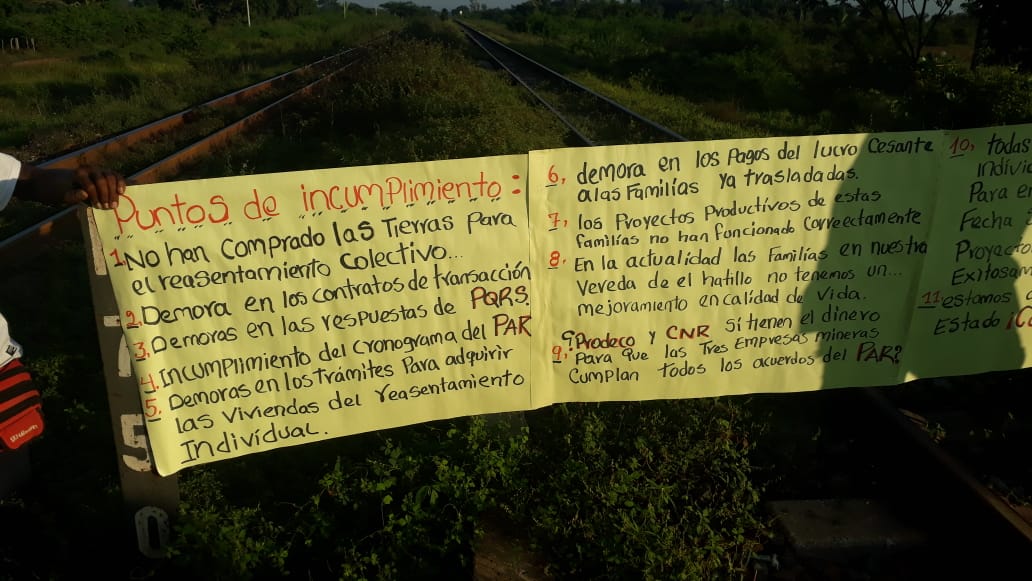 Puntos de incumplimiento:
1. No han comprado las Tierras Para
el reasentamiento colectivo...
2. Demora en los contratos de transacción
3. Demoras en las respuestas de PQRS.
4. Incumplimiento del cronograma del PAR
5. Demoras en los trámites Para adquirir
las viviendas del reasentamiento
Individual.
6, demora en los Pagos del lucro cesante
a las Familias ya trasladadas.
7, los Proyectos Productivos de estas
familias no han funcionado correectamente
8. En la actualidad las Familias en nuestra
vereda de el hatillo no tenemos un...
mejoramiento en calidad de vida.
9. ¿Prodeco y CNR si tienen el dinero
Para que las Tres Empresas mineras
Cumplan todos los acuerdos del PAR?
10, todas
Individ
Para e
Fecha
Proyecto
Exitosam
11 estamos
Estado
50